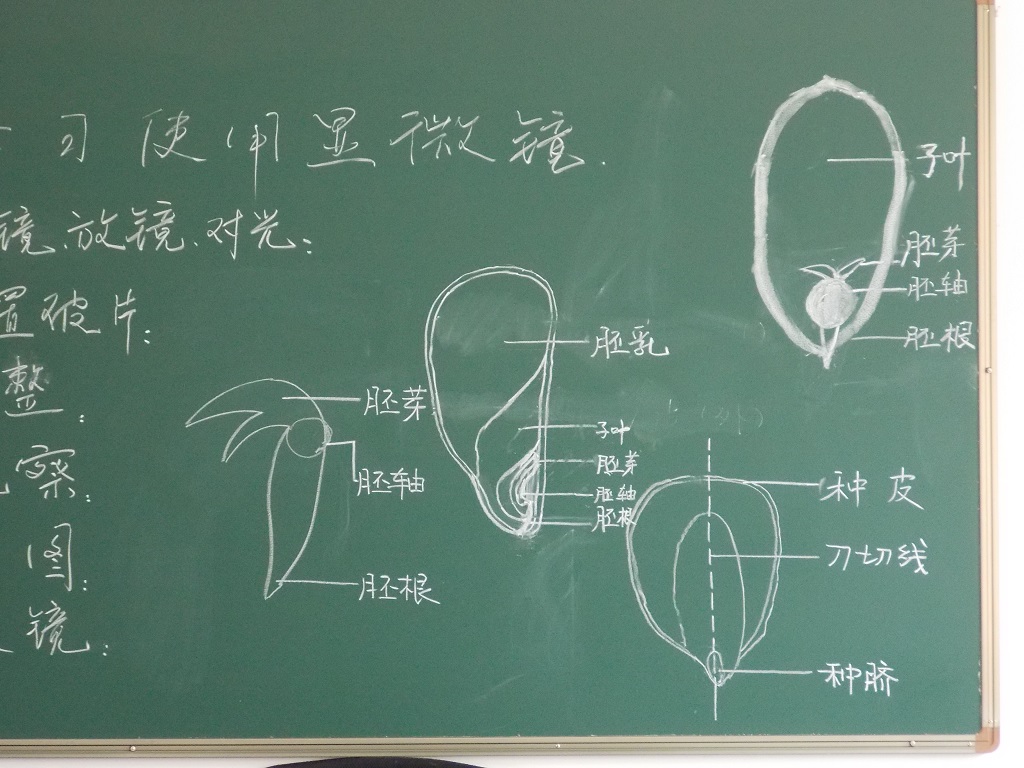 习使用显微镜.
镜.放镜.对光:
置破片:
整:
察:
图:
镜:
胚芽
胚轴
胚根
胚乳
子叶
胚芽
胚轴
胚根
子叶
胚芽
胚轴
胚根
种皮
刀切线
种脐